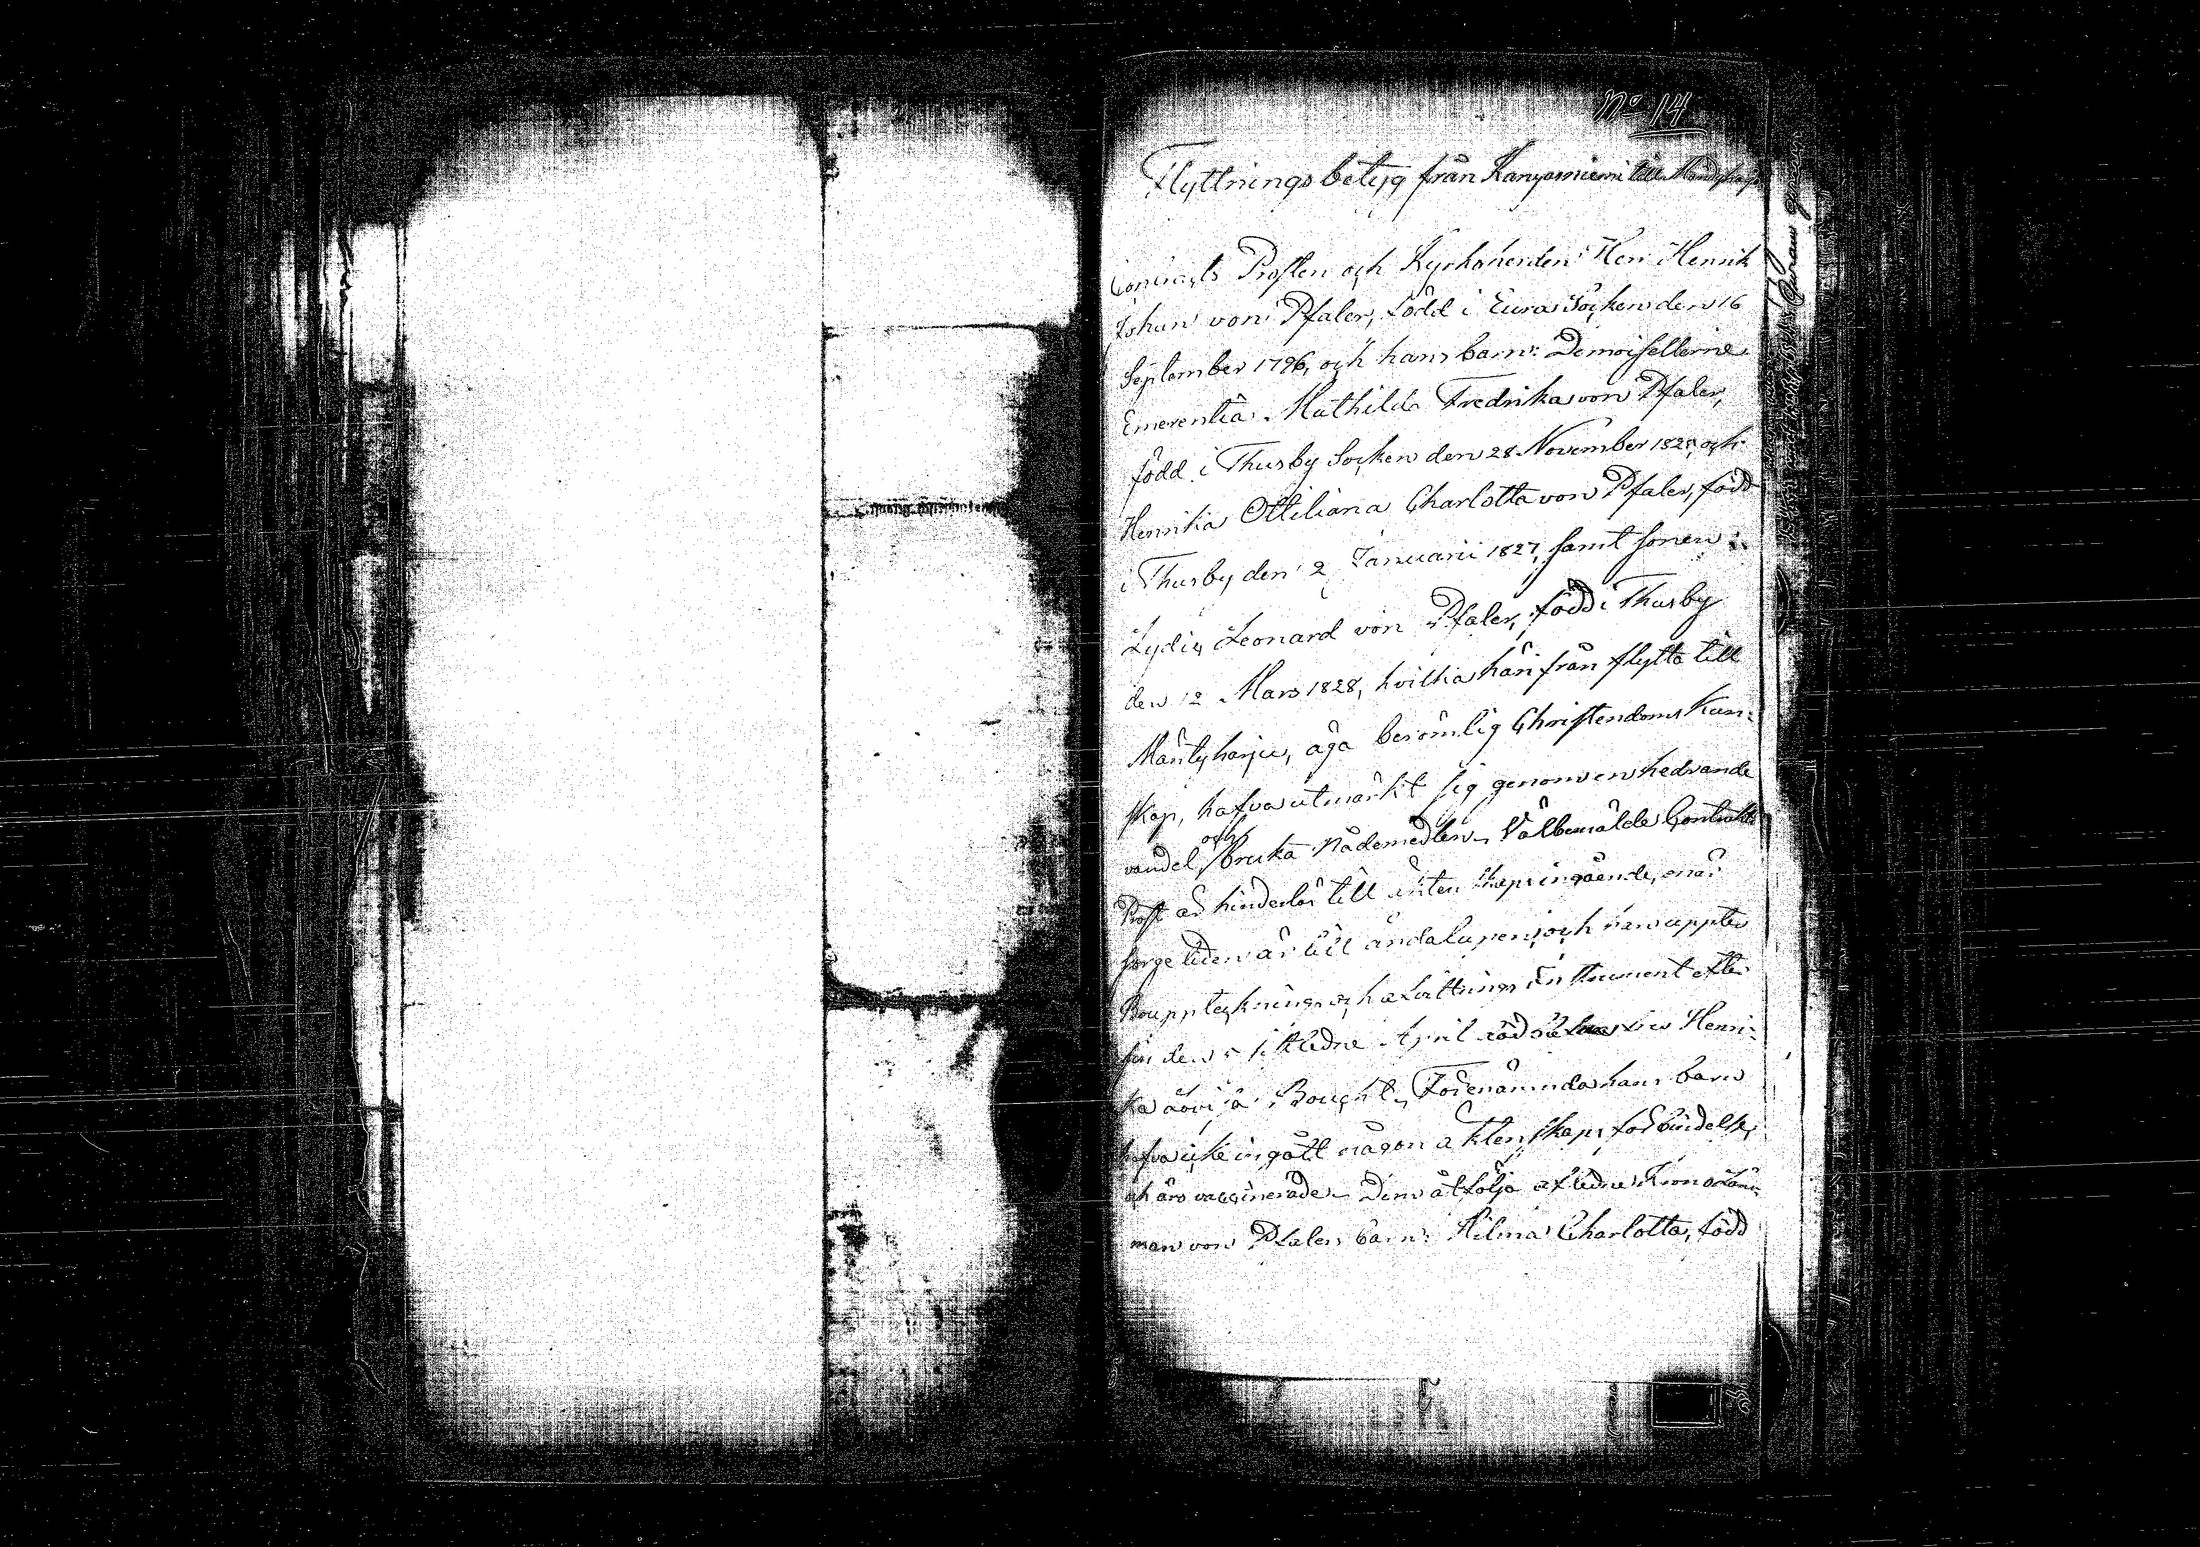 No 14
Flyttningsbetyg från Kangasniemi till Mändyharju
Contracts Prosten och Kyrkoherden Herr Henrik
Johan von Pfaler, född i Eura Socken den 16
September 1796, och hans barn: Demoisellerne
Emerentia Mathilda Fredrika von Pfaler,
född i Thusby Socken den 28 November 1825, och
Henrika Ottiliana Charlotta von Pfaler, född
i Thusby den 2 Januarii 1827, samt sonen
Leonard von Pfaler, född i Thusby
den 12 Mars 1828, hvilka härifrån flytta till
Mäntyharju, äga berömlig Christendoms kun-
skap, hafva utmärkt sig genom en hedrande
vandel, och bruka nådemedlen. Välbemälde Contrakts
Prost är hinderlös till ägtenskaps ingående, enär
sorgetiden är till ändalupen, och han uppte
Bouppteknings och afvittrings instrument efter
sin den 5 sistledne April
Förenämnda hans barn
hafva icke ingått någon äktenskaps förbindelse,
och äro vaccinerade. Dem åtfölja aflidne Kronoläns-
man von Pfalers barn: Hilma Charlotta, född